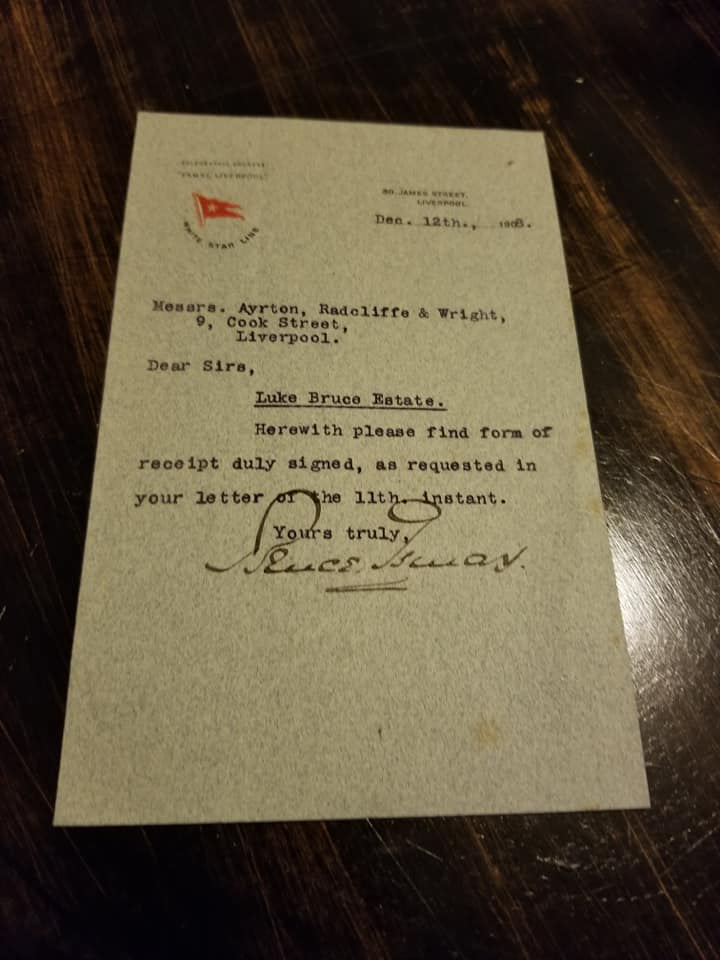 TELEGRAPHIC ADDRESS
"ISMAY, LIVERPOOL"
WHITE STAR LINE
30, JAMES STREET,
LIVERPOOL.
Dec. 12th., 1908.
Messrs. Ayrton, Radcliffe & Wright,
9, Cook Street,
Liverpool.
Dear Sirs,
Luke Bruce Estate.
Herewith please find form of
receipt duly signed, as requested in
your letter of the 11th. instant.
Yours truly,
Bruce Ismay.